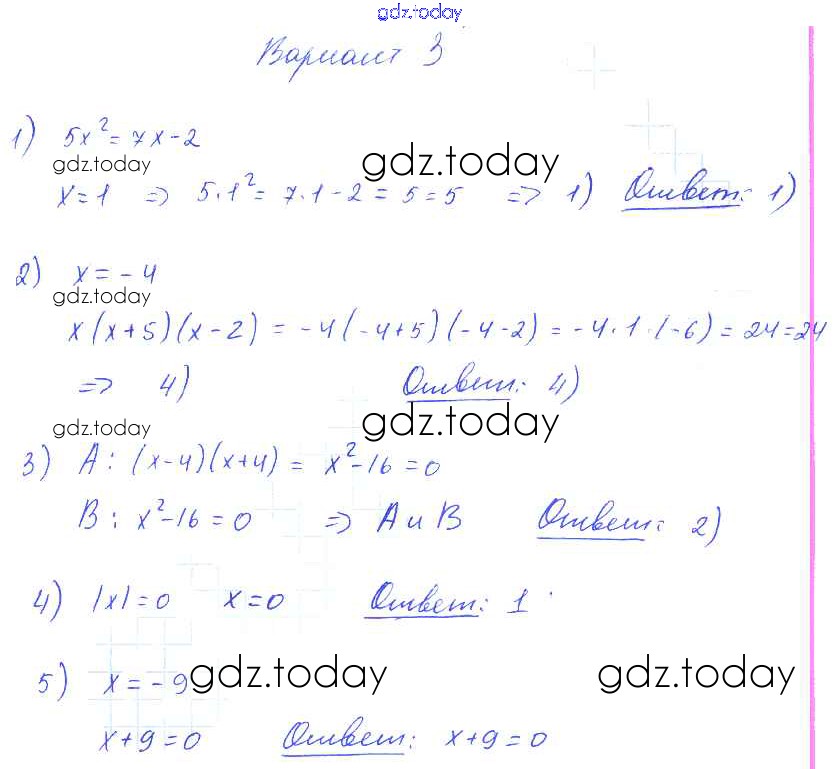 gdz.today
Вариант 3
1) 5x² = 7x - 2
gdz.today
gdz.today
x = 1 => 5·1² = 7·1 - 2 = 5 = 5 => 1) Ответ: 1)
2) x = - 4
gdz.today
x(x+5)(x-2) = -4(-4+5)(-4-2) = -4·1·(-6) = 24 = 24
=> 4) Ответ: 4)
gdz.today
gdz.today
3) A: (x-4)(x+4) = x²-16 = 0
B: x²-16 = 0 => A и B Ответ: 2)
4) |x| = 0 x = 0 Ответ: 1
5) x = - 9
gdz.today
gdz.today
x+9 = 0 Ответ: x+9 = 0